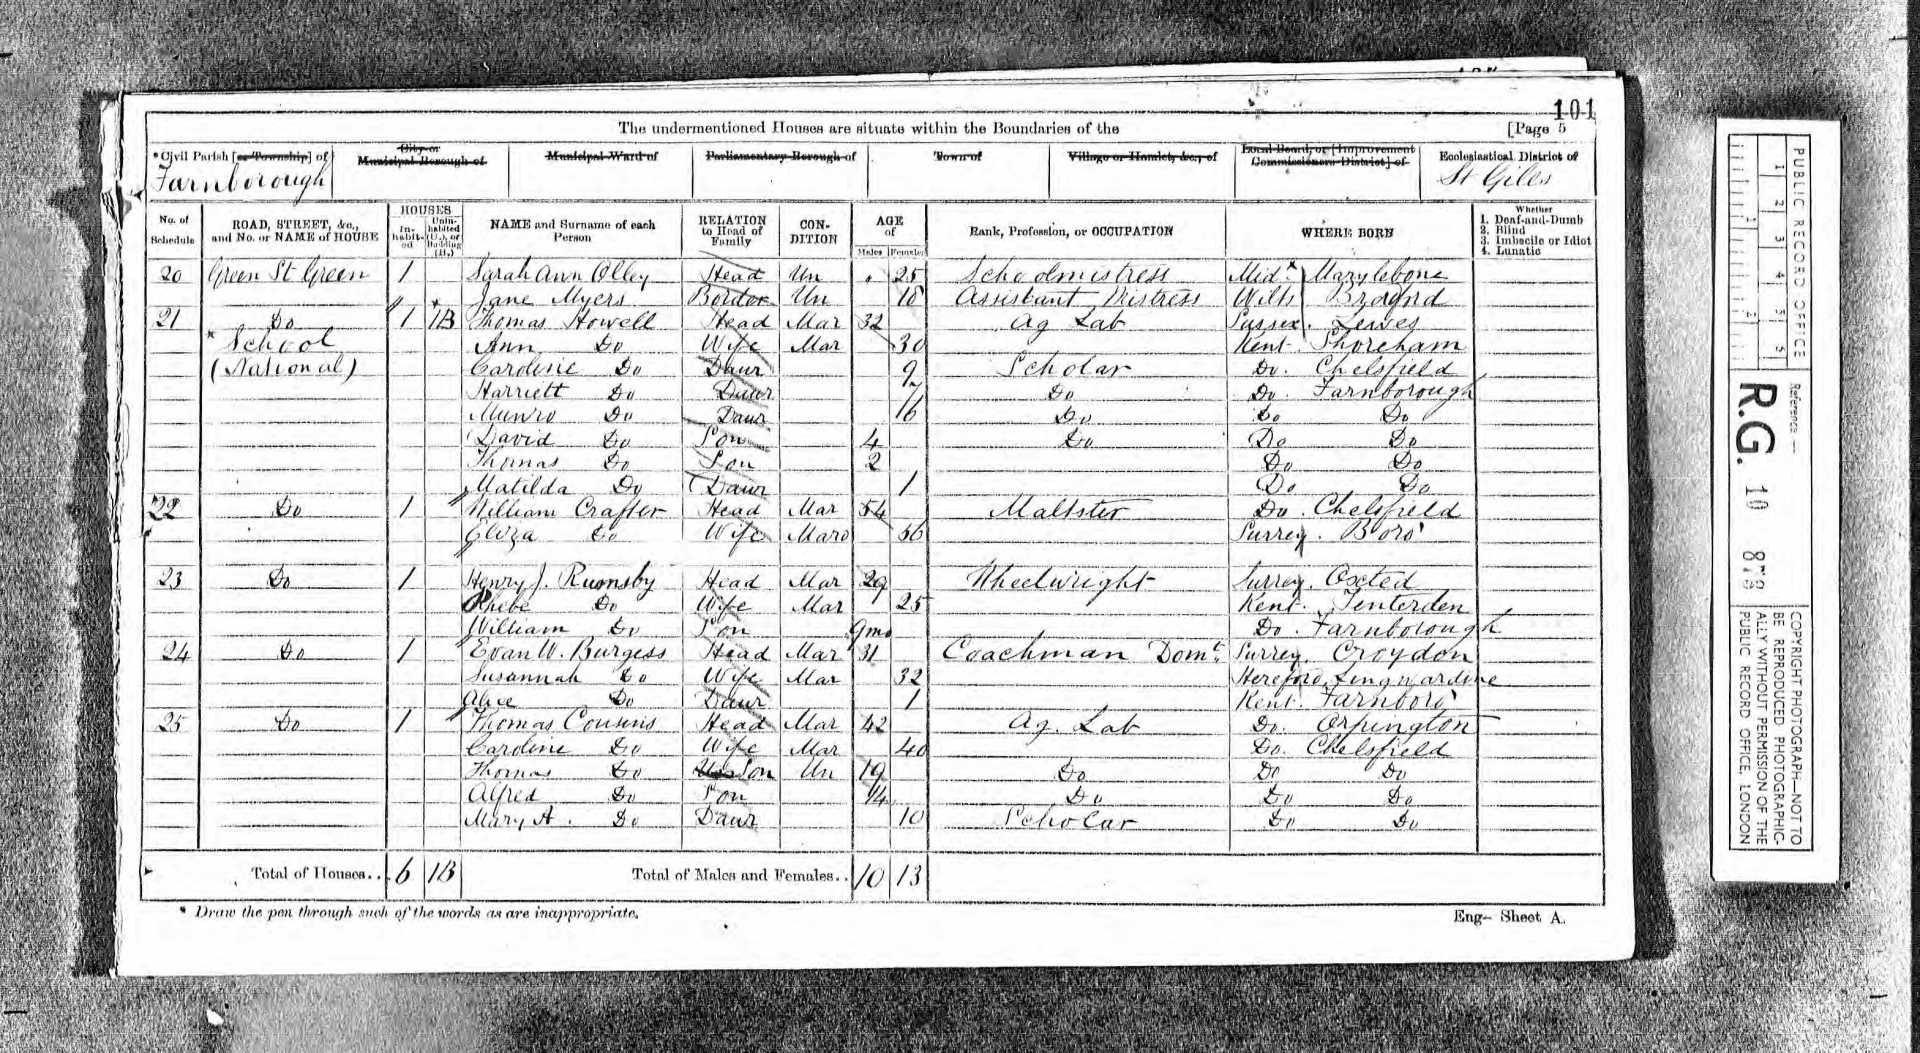 101
The undermentioned Houses are situate within the Boundaries of the [Page 5
*Civil Parish [or Township] of City or Municipal Borough of Municipal Ward of Parliamentary Borough of Town of Village or Hamlet, &c., of Local Board, or [Improvement Commissioners District] of Ecclesiastical District of
Farnborough St Giles
No. of Schedule ROAD, STREET, &c., and No. or NAME of HOUSE HOUSES In-habit-ed Unin-habited (U.), or Building (B.) NAME and Surname of each Person RELATION to Head of Family CON-DITION AGE of Males Females Rank, Profession, or OCCUPATION WHERE BORN Whether 1. Deaf-and-Dumb 2. Blind 3. Imbecile or Idiot 4. Lunatic
20 Green St Green 1 Sarah Ann Olley Head Un 25 Schoolmistress Midx Marylebone
Jane Myers Border Un 18 Assistant Mistress Wilts Bradford
21 Do 1 1B Thomas Howell Head Mar 32 Ag Lab Sussex. Lewes
* School Ann Do Wife Mar 30 Kent. Shoreham
(National) Caroline Do Daur 9 Scholar Do. Chelsfield
Harriett Do Daur 7 Do Do. Farnborough
Munro Do Daur 6 Do Do Do
David Do Son 4 Do Do Do
Thomas Do Son 2 Do Do
Matilda Do Daur 1 Do Do
22 Do 1 William Crafter Head Mar 54 Maltster Do. Chelsfield
Eliza Do Wife Mard 56 Surrey. Boro'
23 Do 1 Henry J. Rumsby Head Mar 29 Wheelwright Surrey. Oxted
Phebe Do Wife Mar 25 Kent. Tenterden
William Do Son 9mo Do. Farnborough
24 Do 1 Evan W. Burgess Head Mar 31 Coachman Domc. Surrey. Croydon
Susannah Do Wife Mar 32 Hereford Lingwardine
Alice Do Daur 1 Kent. Farnboro'
25 Do 1 Thomas Cousins Head Mar 42 Ag. Lab Do. Orpington
Caroline Do Wife Mar 40 Do. Chelsfield
Thomas Do Son Un 19 Do Do Do
Alfred Do Son 14 Do Do Do
Mary A. Do Daur 10 Scholar Do Do
Total of Houses.. 6 1B Total of Males and Females.. 10 13
* Draw the pen through such of the words as are inappropriate.
Eng- Sheet A.
PUBLIC RECORD OFFICE
1 2 3 4 5
1 2
Reference:-
R.G. 10 878
COPYRIGHT PHOTOGRAPH—NOT TO BE REPRODUCED PHOTOGRAPHIC-ALLY WITHOUT PERMISSION OF THE PUBLIC RECORD OFFICE, LONDON